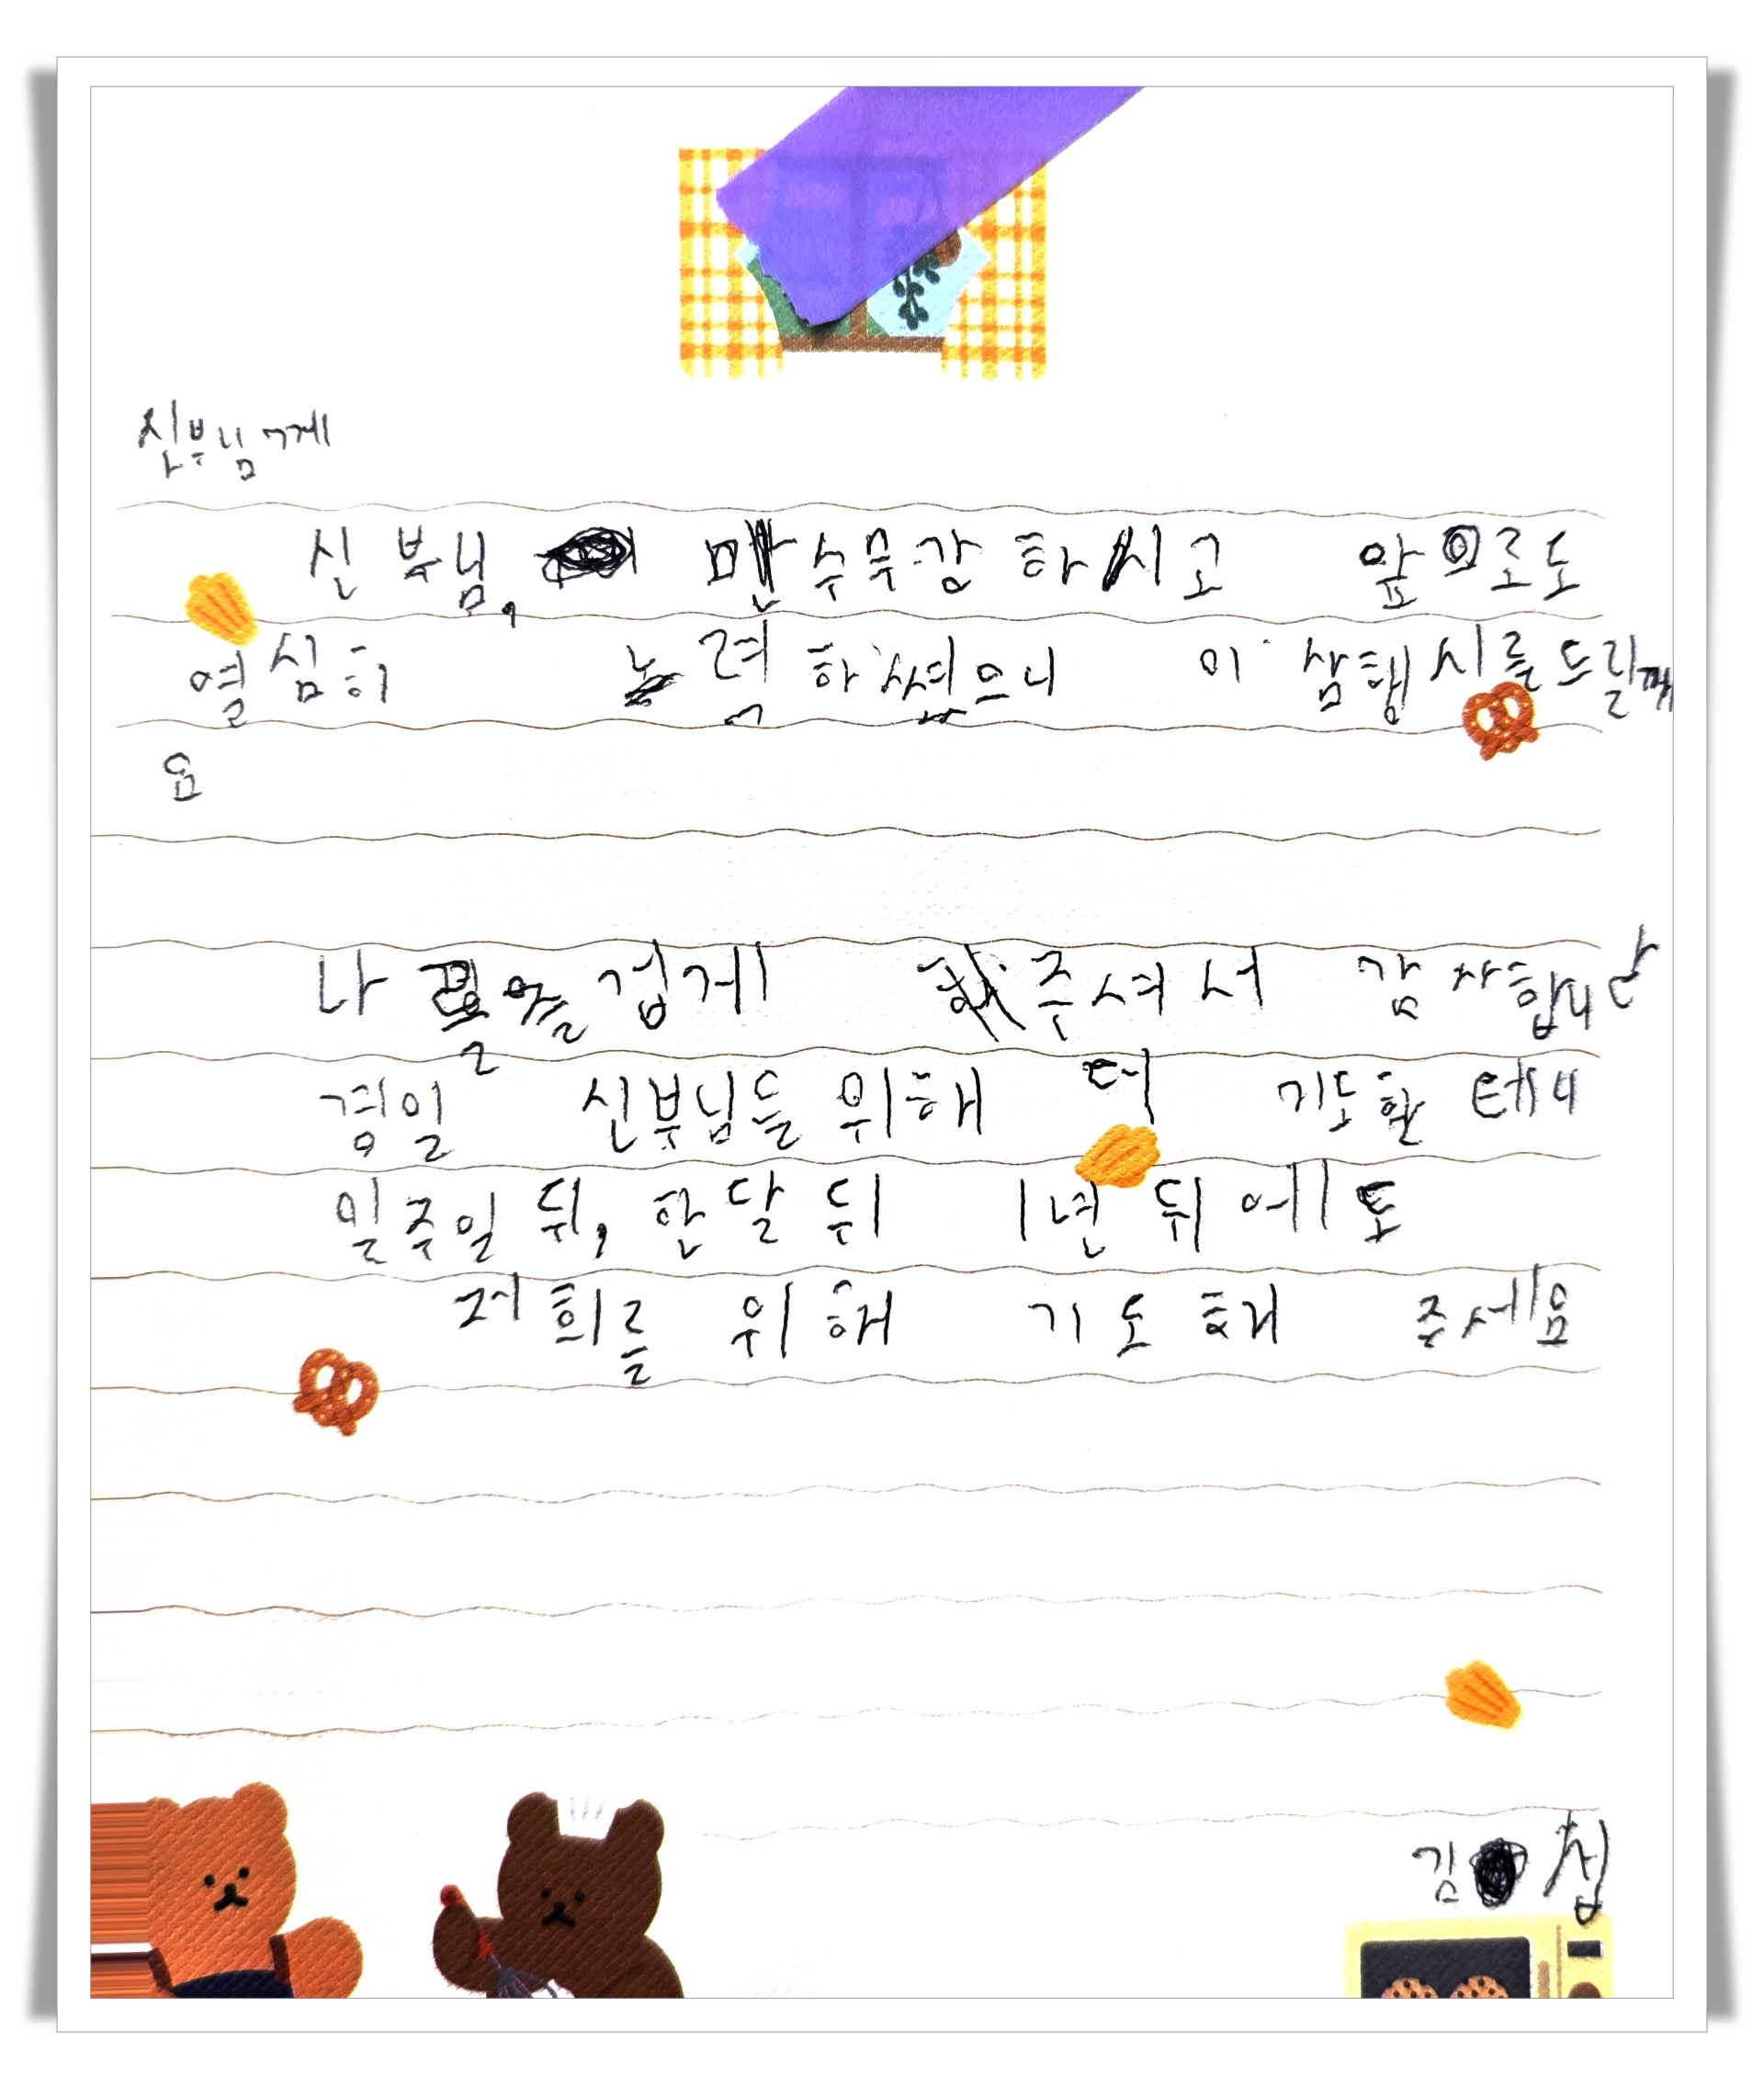 신부님께
신부님, 만수무강 하시고 앞으로도
열심히 노력하셨으니 이 삼행시를드릴께
요
나를 즐겁게 해주셔서 감사합니다
경일 신부님을 위해 더 기도할 테니
일주일 뒤, 한 달 뒤 1년 뒤에도
저희를 위해 기도해 주세요
김 섭